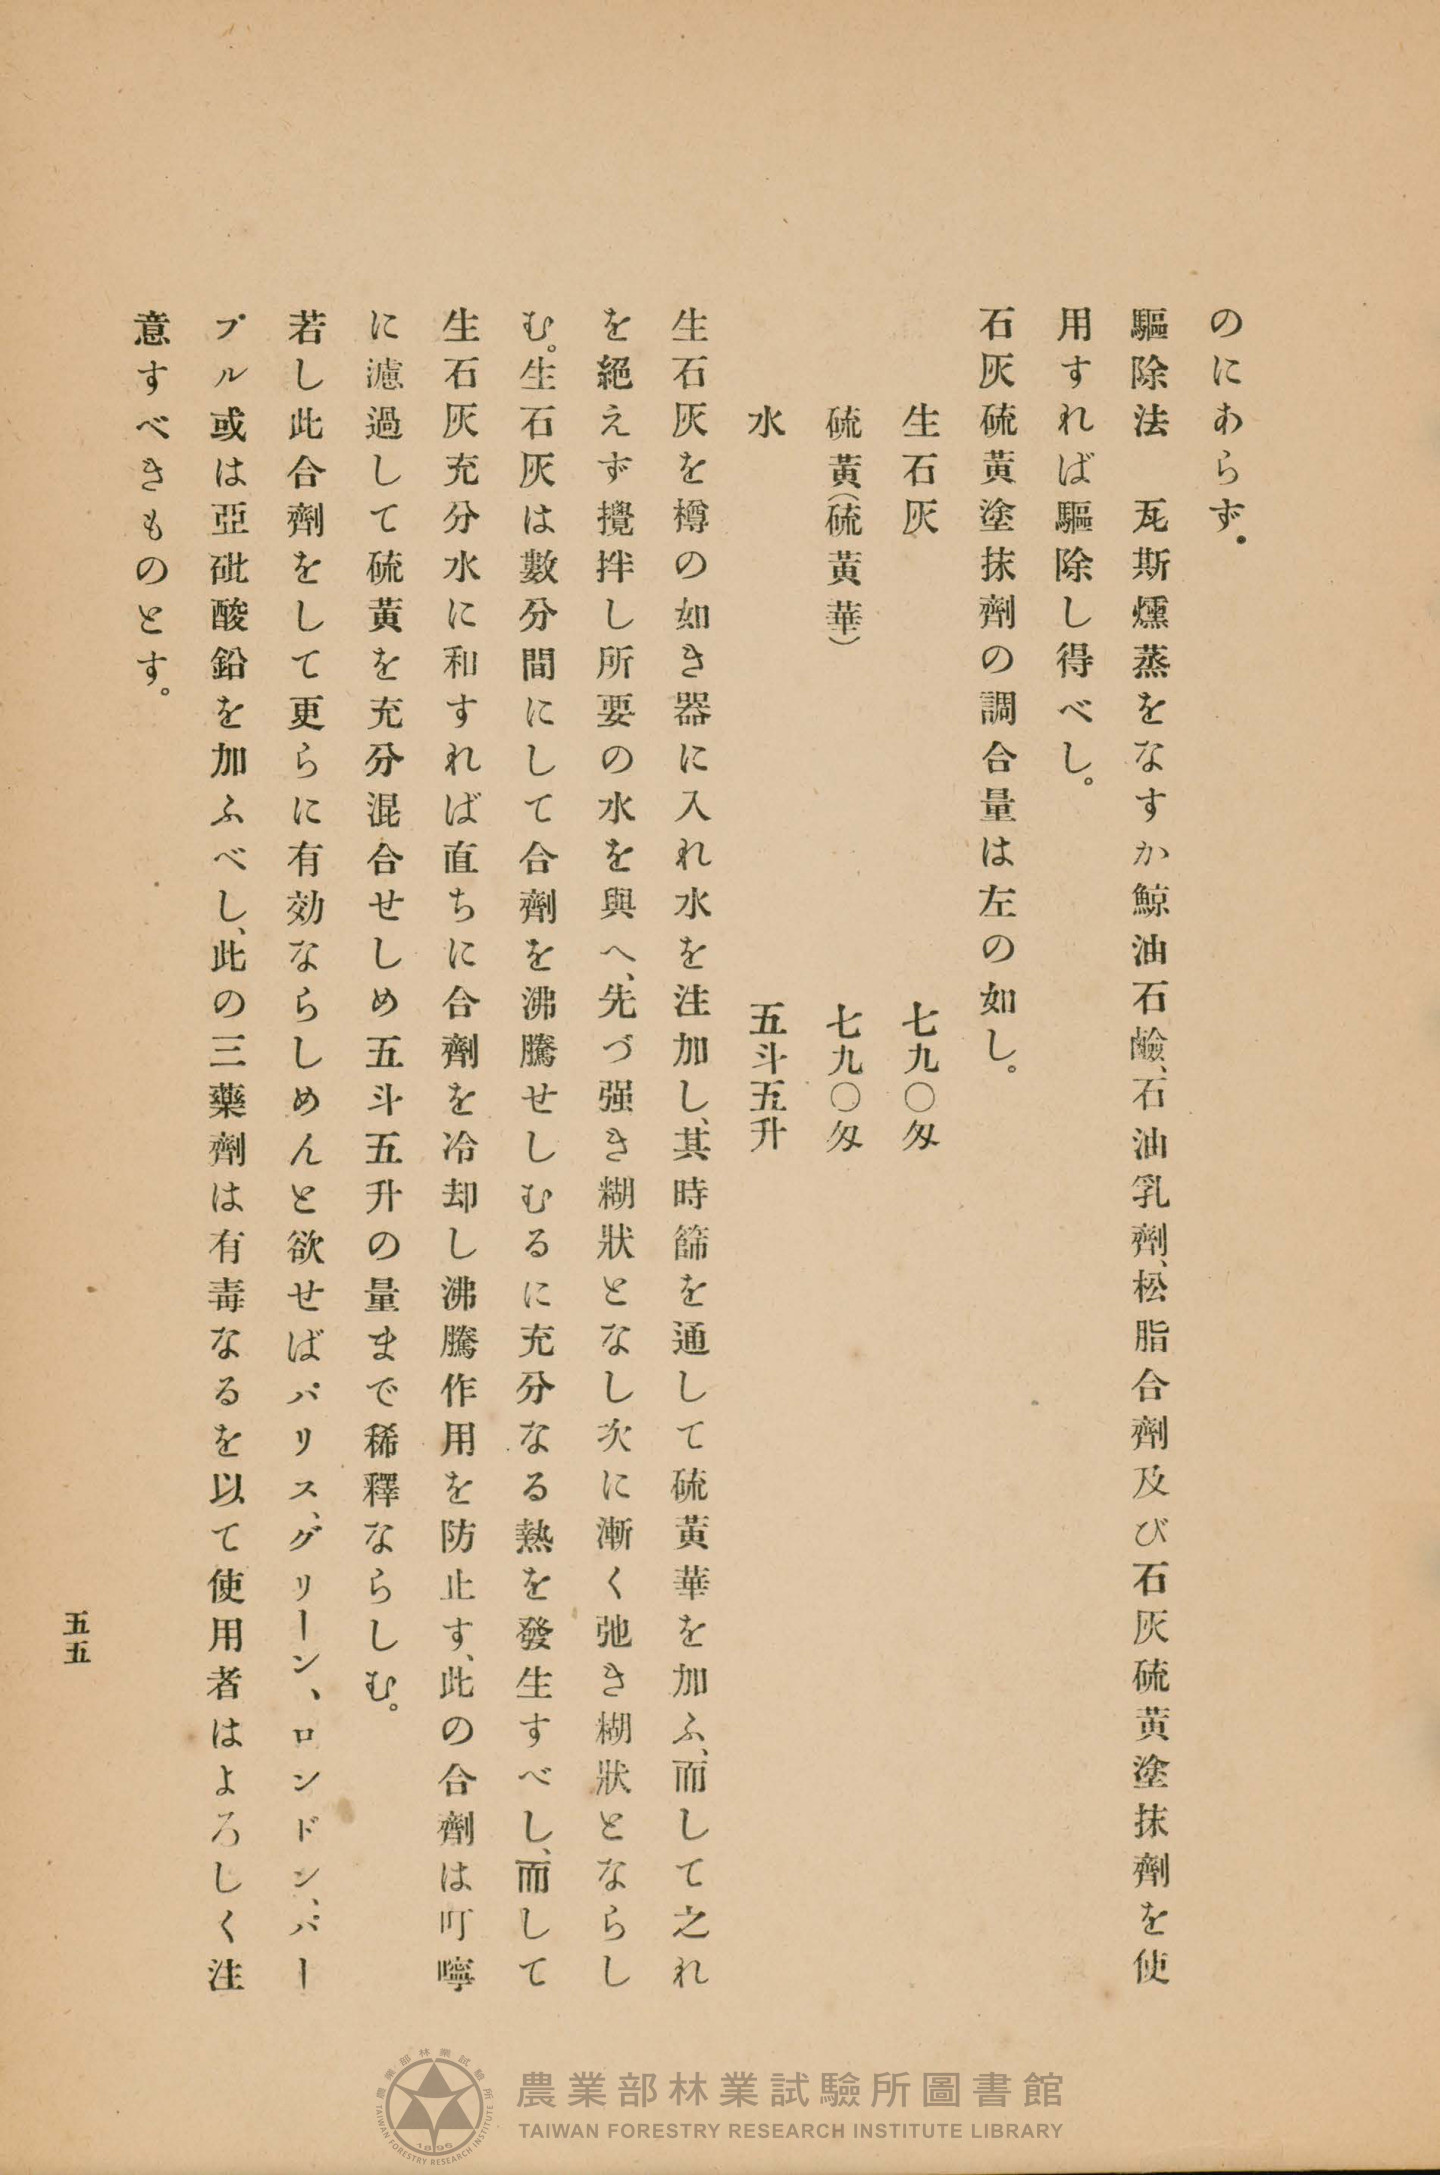 のにあらず。
驅除法　瓦斯燻蒸をなすか鯨油石鹼、石油乳劑、松脂合劑及び石灰硫黄塗抹劑を使
用すれば驅除し得べし。
石灰硫黄塗抹劑の調合量は左の如し。
生石灰　七九〇匁
硫黄(硫黄華)　七九〇匁
水　五斗五升
生石灰を樽の如き器に入れ水を注加し、其時篩を通して硫黄華を加ふ、而して之れ
を絕えず攪拌し所要の水を與へ、先づ强き糊狀となし次に漸く弛き糊狀とならし
む。生石灰は數分間にして合劑を沸騰せしむるに充分なる熱を發生すべし、而して
生石灰充分水に和すれば直ちに合劑を冷却し沸騰作用を防止す、此の合劑は叮嚀
に濾過して硫黄を充分混合せしめ五斗五升の量まで稀釋ならしむ。
若し此合劑をして更らに有効ならしめんと欲せばパリス、グリーン、ロンドン、パー
プル或は亞砒酸鉛を加ふべし、此の三藥劑は有毒なるを以て使用者はよろしく注
意すべきものとす。
五五
農業部林業試驗所圖書館
TAIWAN FORESTRY RESEARCH INSTITUTE LIBRARY
農業部林業試驗所
TAIWAN FORESTRY RESEARCH INSTITUTE
1896